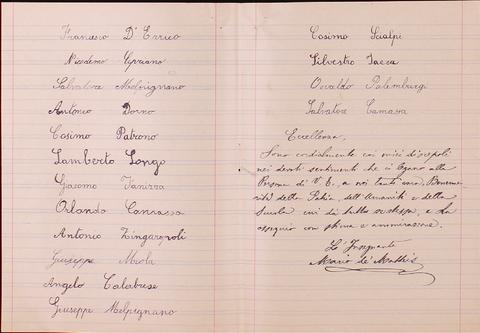 Francesco D'Errico
Nicodemo Cipriano
Salvatore Melpignano
Antonio Dorno
Cosimo Patrono
Lamberto Longo
Giacomo
Orlando
Antonio Zingaropoli
Giuseppe Miola
Angelo Calabrese
Giuseppe Melpignano
Cosimo Scialpi
Silvestro Tacca
Osvaldo Palemburgi
Salvatore Camassa
Eccellenza,
Sono cordialmente coi miei discepoli
nei devoti sentimenti che ci legano alla
Persona di V. E., a noi tanto cara, Beneme-
rita della Patria, dell'Umanità e della
Scuola cui dà tutto se stesso, e La
ossequio con stima e ammirazione.
L'Insegnante
Mario de' Mattis